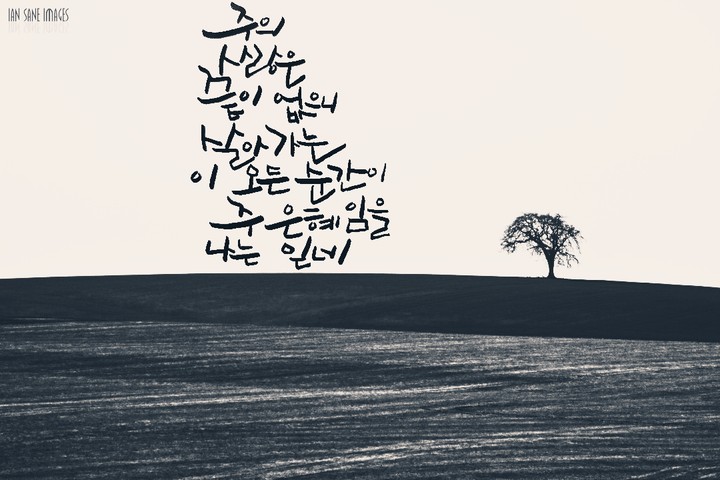 IAN SANE IMAGES
주의
사랑은
끝이 없으니
살아가는
이 모든 순간이
주 은혜임을
나는 믿네